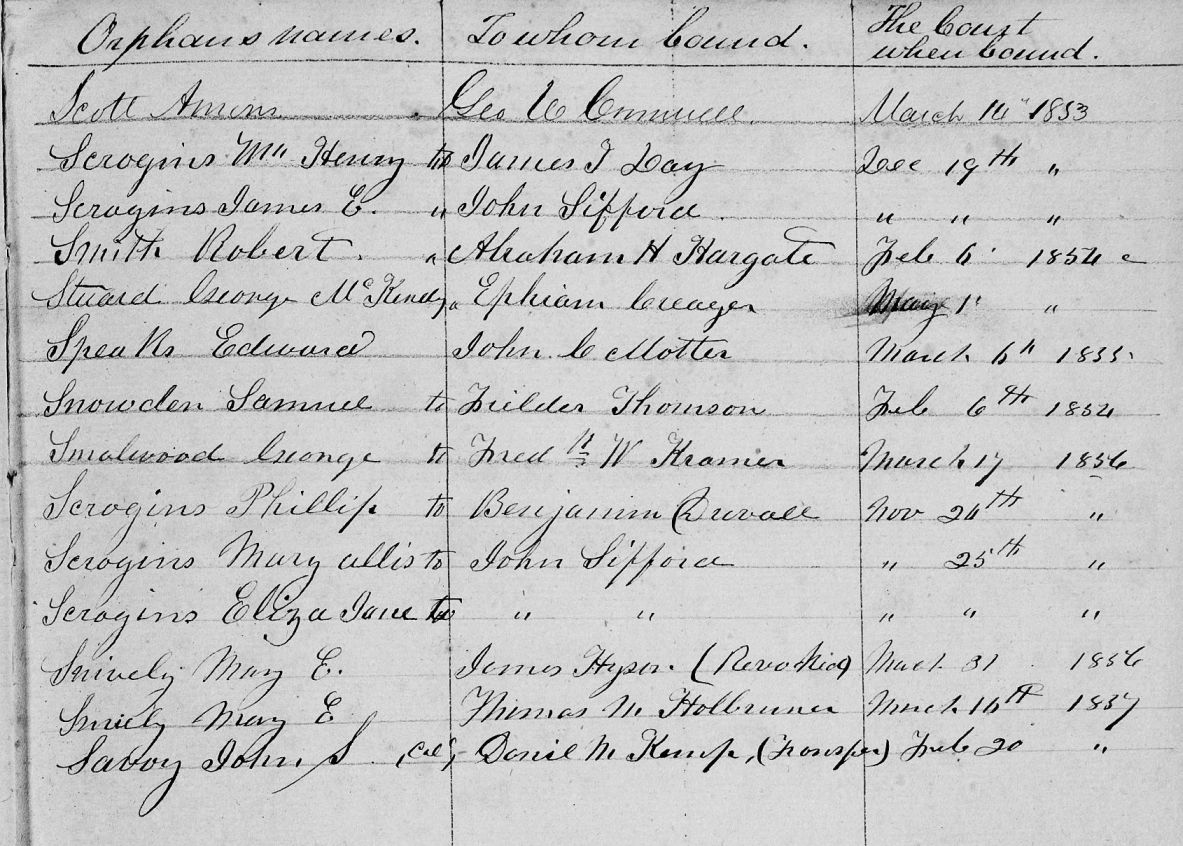 Orphans names. To whom bound. The Court
when bound.
Scott Amons Geo W Cromwell. March 14" 1853
Scrogins Wm Henry to James T Day Dec 19th "
Scrogins James E. " John Sifford " " "
Smith Robert. " Abraham H Hargate Feb 6 1854
Stuard George McKendy " Ephiam Creager May 1" "
Speaks Edward John C Motter March 6th 1855
Snowden Samuel to Fielder Thomson Feb 6th 1854
Smalwood George to Fred W Kramer March 17 1856
Scrogins Phillip to Benjamin Duvall Nov 24th "
Scrogins Mary allis to John Sifford " 25th "
Scrogins Eliza Jane to " " " " "
Snively Mary E. James Hyser. (Revoked) March 31 1856
Snively Mary E Thomas M Holbruner March 16th 1857
Savoy John S Cold, Daniel M Kemp, (Transfer) Feb 20 "